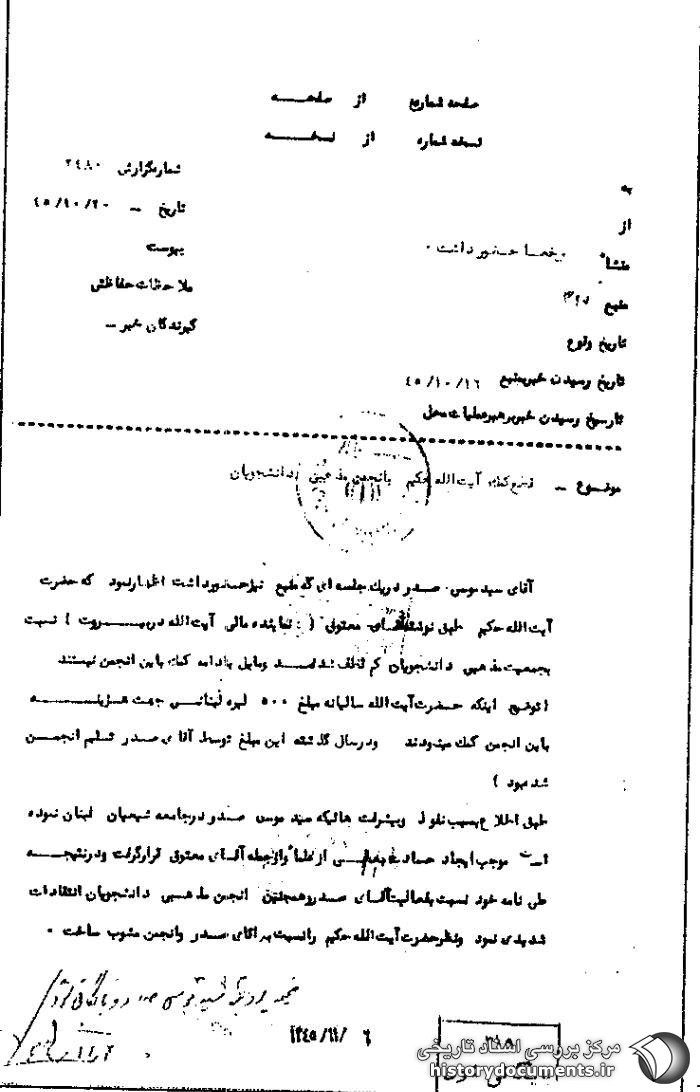 صفحه شماره از صفحه
نسخه شماره از نسخه
به
از
منشاء شخصا حضور داشت .
منبع
تاریخ وقوع
تاریخ رسیدن خبر بمنبع ۴۵/۱۰/۱۶
تاریخ رسیدن خبر برهبر عملیات محل
شماره گزارش ۲۴۸۰
تاریخ – ۴۵/۱۰/۲۰
پیوست
ملاحظات حفاظتی
گیرندگان خبر –
موضوع – قطع کمک آیت الله حکیم بانجمن مذهبی دانشجویان
آقای سید موسی صدر در یک جلسه ای که منبع نیز حضور داشت اظهار نمود که حضرت
آیت الله حکیم طبق نوشته آقای معتوق ( نماینده مالی آیت الله در بیروت ) نسبت
بجمعیت مذهبی دانشجویان کم لطف شده و مایل بادامه کمک باین انجمن نیستند
( توضیح اینکه حضرت آیت الله سالیانه مبلغ ۵۰۰ لیره لبنانی جهت هزینه
باین انجمن کمک مینمودند و در سال گذشته این مبلغ توسط آقای صدر تسلیم انجمن
شده بود )
طبق اطلاع بسبب نفوذ و پیشرفت هائیکه سید موسی صدر در جامعه شیعیان لبنان نموده
است موجب ایجاد حسادت بعضی از علما و از جمله آقای معتوق قرار گرفت و در نتیجه
طی نامه خود نسبت بفعالیت آقای صدر و همچنین انجمن مذهبی دانشجویان انتقادات
شدیدی نمود و نظر حضرت آیت الله حکیم را نسبت به آقای صدر و انجمن مشوب ساخت .
۱۳۴۵/۱۱/ ۶
مرکز بررسی اسناد تاریخی
historydocuments.ir